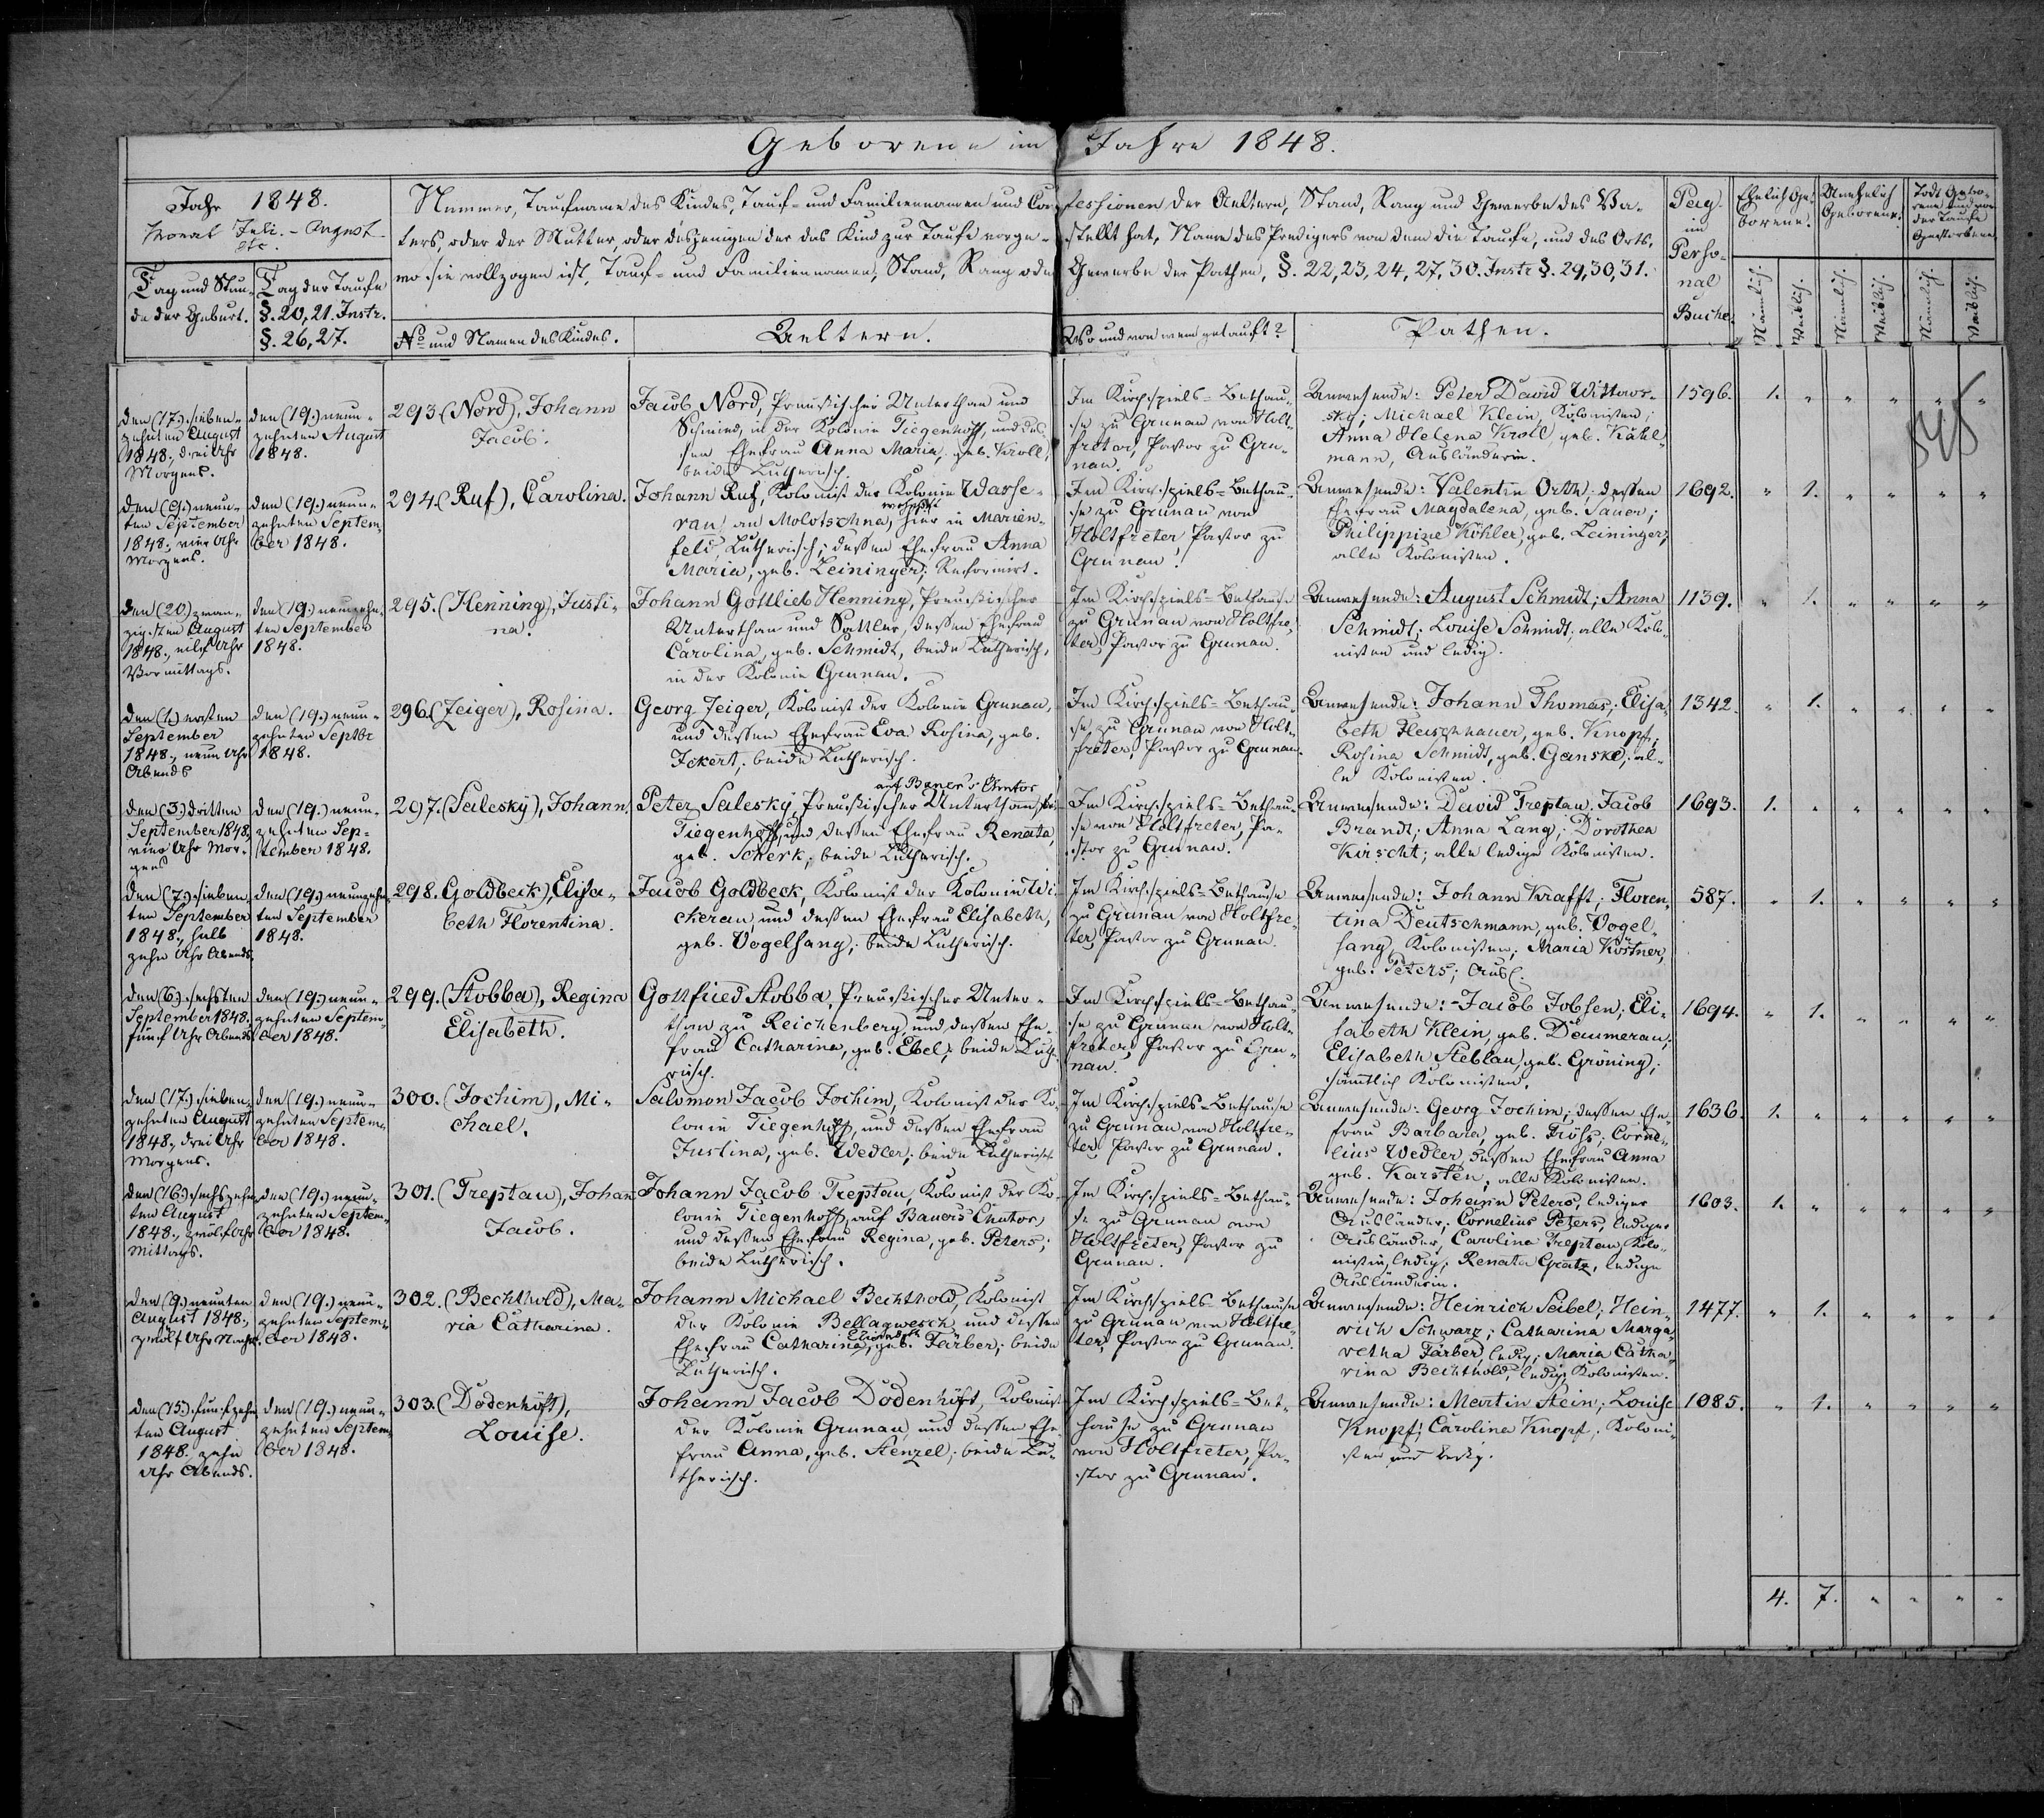 Geborene im Jahre 1848.
Jahr 1848.
Monat Juli. - August
etc.
Tag und Stun-
de der Geburt.
Tag der Taufe
§. 20, 21. Instr.
§. 26, 27.
Nummer, Taufname des Kindes, Tauf- und Familiennamen und Confessionen der Aeltern, Stand, Rang und Gewerbe des Va-
ters, oder der Mutter, oder desjenigen der das Kind zur Taufe vorge-stellt hat, Name des Predigers von dem die Taufe, und des Orts,
wo sie vollzogen ist, Tauf- und Familiennamen, Stand, Rang oder Gewerbe der Pathen, §. 22, 23, 24, 27, 30. Instr. §. 29, 30, 31.
No und Namen des Kindes.
Aeltern.
Wo und von wem getauft?
Pathen.
Pag.
im
Perso-
nal
Buche.
Ehelich Ge-
borene.
Unehelich
Geborene.
Todt Gebo-
rene und vor
der Taufe
Gestorbene.
Männlich.
Weiblich.
Männlich.
Weiblich.
Männlich.
Weiblich.
den (17.) sieben-
zehnten August
1848., drei Uhr
Morgens.
den (19.) neun-
zehnten August
1848.
293 (Nord), Johann
Jacob.
Jacob Nord, Preußischer Unterthan und
Schmied, in der Kolonie Tiegenhoff, und des-
sen Ehefrau Anna Maria, geb. Kroll,
beide Lutherisch.
Im Kirchspiels-Bethau-
se zu Grunau von Holt-
freter, Pastor zu Gru-
nau.
Anwesende: Peter David Wittows-
sky; Michael Klein, Kolonisten;
Anna Helena Kroll geb. Kähl-
mann, Ausländerin.
1596. 1. " " " " "
den (9.) neun-
ten September
1848., vier Uhr
Morgens.
den (19.) neun-
zehnten Septem-
ber 1848.
294. (Ruf), Carolina.
Johann Ruf, Kolonist der Kolonie Wasse-
wohnh.
rau an Molotschna, hier in Marien-
feld, Lutherisch; dessen Ehefrau Anna
Maria, geb. Leininger; Reformirt.
Im Kirchspiels-Bethau-
se zu Grunau von
Holtfreter, Pastor zu
Grunau.
Anwesende: Valentin Orth; dessen
Ehefrau Magdalena, geb. Sauer;
Philippine Köhler, geb. Leininger,
alle Kolonisten.
1692. " 1. " " " "
den (20.) zwan-
zigsten August
1848., eilf Uhr
Vormittags.
den (19.) neunzehn-
ten September
1848.
295. (Henning), Justi-
na.
Johann Gottlieb Henning, Preußischer
Unterthan und Sattler, dessen Ehefrau
Carolina, geb. Schmidt, beide Lutherisch,
in der Kolonie Grunau.
Im Kirchspiels-Bethause
zu Grunau von Holtfre-
ter, Pastor zu Grunau.
Anwesende: August Schmidt; Anna
Schmidt; Louise Schmidt; alle Kolo-
nisten und ledig.
1139. " 1. " " " "
den (1.) ersten
September
1848., neun Uhr
Abends
den (19.) neun-
zehnten Septbr
1848.
296. (Zeiger), Rosina.
Georg Zeiger, Kolonist der Kolonie Grunau,
und dessen Ehefrau Eva Rosina, geb.
Ickert; beide Lutherisch.
Im Kirchspiels-Bethau-
se zu Grunau von Holt-
freter, Pastor zu Grunau.
Anwesende: Johann Thomas; Elisa-
beth Fleischhauer, geb. Knopf;
Rosina Schmidt, geb. Ganske; al-
le Kolonisten.
1342. " 1. " " " "
den (3.) dritten
September 1848.,
vier Uhr Mor-
gens
den (19.) neun-
zehnten Sep-
tember 1848.
297. (Salesky), Johann.
auf Bauer's Chutor
Peter Salesky, Preußischer Unterthan
Tiegenhoff, und dessen Ehefrau Renata,
geb. Scherk; beide Lutherisch.
Im Kirchspiels-Bethau-
se von Holtfreter, Pa-
stor zu Grunau.
Anwesende: David Treptau; Jacob
Brandt; Anna Lang; Dorothea
Kirscht; alle ledige Kolonisten.
1693. 1. " " " " "
den (7.) sieben-
ten September
1848., halb
zehn Uhr Abends.
den (19.) neunzehn-
ten September
1848.
298. Goldbeck), Elisa-
beth Florentina.
Jacob Goldbeck, Kolonist der Kolonie Wi-
cherau, und dessen Ehefrau Elisabeth,
geb. Vogelsang; beide Lutherisch.
Im Kirchspiels-Bethause
zu Grunau von Holtfre-
ter, Pastor zu Grunau.
Anwesende: Johann Krafft; Floren-
tina Deutschmann, geb. Vogel-
sang, Kolonisten; Maria Köstner,
geb. Peters; Ausl.
587. " 1. " " " "
den (6.) sechsten
September 1848.
fünf Uhr Abends
den (19.) neun-
zehnten Septem-
ber 1848.
299. (Stobba), Regina
Elisabeth.
Gottfried Stobba, Preußischer Unter-
than zu Reichenberg und dessen Ehe-
frau Catharina, geb. Ebel; beide Luthe-
risch.
Im Kirchspiels-Bethau-
se zu Grunau von Holt-
freter, Pastor zu Gru-
nau.
Anwesende: Jacob Jobsen; Eli-
sabeth Klein, geb. Deumerau;
Elisabeth Steblau, geb. Gröning;
sämtlich Kolonisten.
1694. " 1. " " " "
den (17.) sieben-
zehnten August
1848., drei Uhr
Morgens.
den (19.) neun-
zehnten Septem-
ber 1848.
300. (Jochim), Mi-
chael.
Salomon Jacob Jochim, Kolonist der Ko-
lonie Tiegenhoff, und dessen Ehefrau
Justina, geb. Wedler; beide Lutherisch
Im Kirchspiels-Bethause
zu Grunau von Holtfre-
ter, Pastor zu Grunau.
Anwesende: Georg Jochim; dessen Ehe-
frau Barbara, geb. Fröhs; Corne-
lius Wedler, dessen Ehefrau Anna
geb. Karsten; alle Kolonisten.
1636. 1. " " " " "
den (16.) sechszehn-
ten August
1848., zwölf Uhr
Mittags.
den (19.) neun-
zehnten Septem-
ber 1848.
301. (Treptau), Johan
Jacob.
Johann Jacob Treptau, Kolonist der Ko-
lonie Tiegenhoff, auf Bauers Chutor,
und dessen Ehefrau Regina, geb. Peters;
beide Lutherisch.
Im Kirchspiels-Bethau-
se zu Grunau von
Holtfreter, Pastor zu
Grunau.
Anwesende: Johann Peters, lediger
Ausländer; Cornelius Peters, lediger
Ausländer; Carolina Treptau, Kolo-
nistin, ledig; Renata Gratz, ledige
Ausländerin.
1603. 1. " " " " "
den (9.) neunten
August 1848.,
zwölf Uhr Nachts.
den (19.) neun-
zehnten Septem-
ber 1848.
302. (Bechthold), Ma-
ria Catharina.
Johann Michael Bechthold, Kolonist
der Kolonie Bellagwesch und dessen
Elisabeth
Ehefrau Catharina, geb. Färber; beide
Lutherisch.
Im Kirchspiels-Bethause
zu Grunau von Holtfre-
ter, Pastor zu Grunau.
Anwesende: Heinrich Seibel; Hein-
rich Schwarz; Catharina Marga-
retha Färber, ledig; Maria Catha-
rina Bechthold, ledig, Kolonisten.
1477. " 1. " " " "
den (15.) fünfzehn-
ten August
1848., zehn
Uhr Abends.
den (19.) neun-
zehnten Septem-
ber 1848.
303. (Dodenhöft),
Louise.
Johann Jacob Dodenhöft, Kolonist
der Kolonie Grunau, und dessen Ehe-
frau Anna, geb. Stenzel; beide Lu-
therisch.
Im Kirchspiels-Bet-
hause zu Grunau
von Holtfreter, Pa-
stor zu Grunau.
Anwesende: Martin Stein; Louise
Knopf; Carolina Knopf, Koloni-
sten und ledig.
1085. " 1. " " " "
4. 7. " " " "